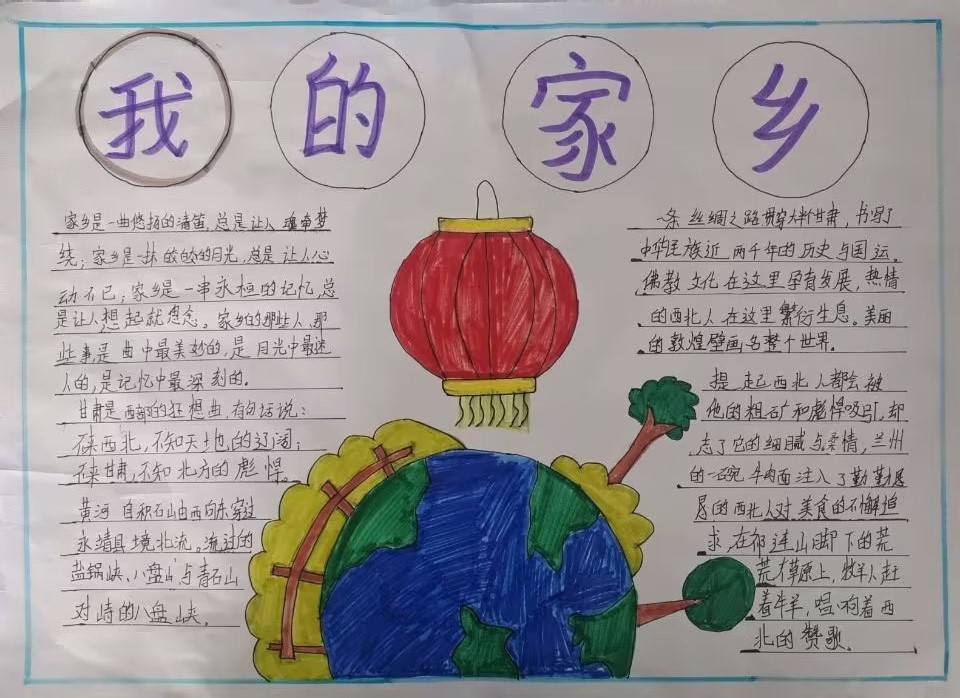 我的家乡
家乡是一曲悠扬的清笛,总是让人魂牵梦
绕;家乡是一抹皎皎的月光,总是让人心
动不已;家乡是一串永恒的记忆,总
是让人想起就思念。家乡的那些人、那
些事是曲中最美妙的,是月光中最迷
人的,是记忆中最深刻的。
甘肃是西部的狂想曲,有句话说:
不来西北,不知天地的辽阔;
不来甘肃,不知北方的彪悍。
黄河自积石山由西向东穿过
永靖县境北流。流过的
盐锅峡、八盘山与青石山
对峙的八盘峡.
一条丝绸之路贯穿大半个甘肃,书写了
中华民族近两千年的历史与国运.
佛教文化在这里孕育发展,热情
的西北人在这里繁衍生息。美丽
的敦煌壁画名整个世界.
提起西北人都会被
他的粗矿和彪悍吸引,却
忘了它的细腻与柔情,兰州
的一碗牛肉面注入了勤勤恳
恳的西北人对美食的不懈追
求,在祁连山脚下的荒
荒草原上,牧羊人赶
着牛羊,唱响着西
北的赞歌.